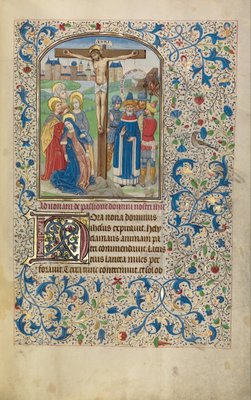 INRI
Ad nonam de passione domini nostri
Hora nona dominus
ihesus expirauit. Hely
clamans animam pa
tri commendauit. Latus
eius lancea miles per
forauit. Terra tunc contremuit et sol ob